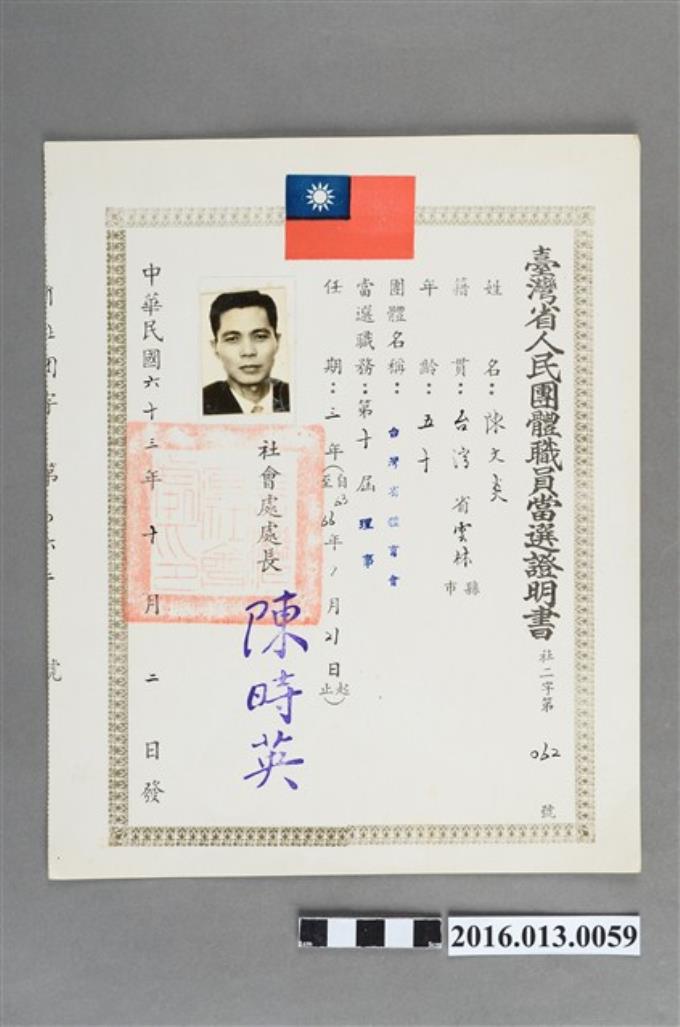 臺灣省人民團體職員當選證明書
社二字第 032 號
姓 名：陳文炎
籍 貫：台灣省雲林縣市
年 齡：五十
團體名稱：台灣省體育會
當選職務：第十屆理事
任 期：三年（自63至66年1月21日起止）
社會處處長
陳時英
中華民國六十三年十月二日發
2016.013.0059